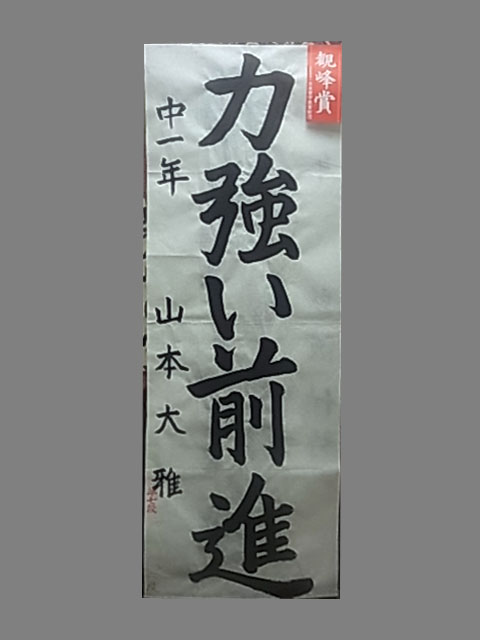 観峰賞
力強い前進
中一年 山本大雅